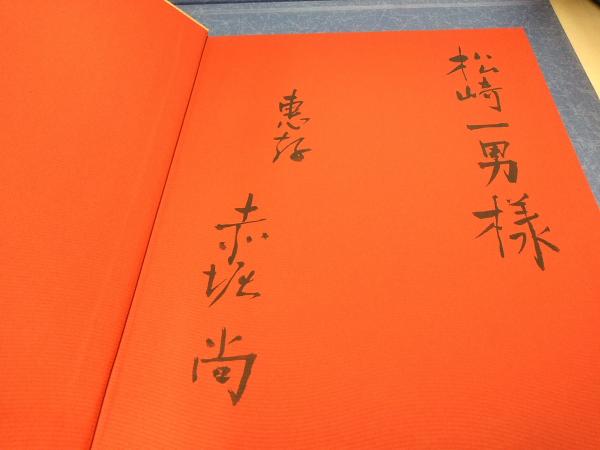 松崎一男様
恵存
赤堀尚